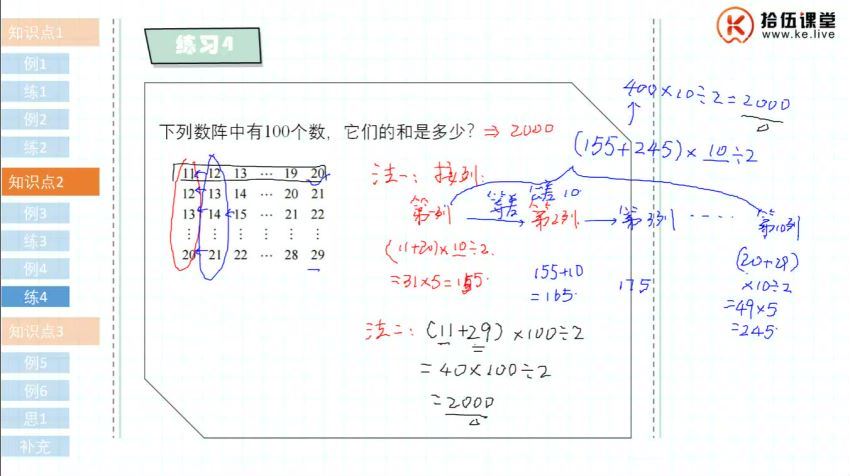 知识点1
例1
练1
例2
练2
知识点2
例3
练3
例4
练4
知识点3
例5
例6
思1
补充
练习4
拾伍课堂
www.ke.live
下列数阵中有100个数，它们的和是多少? ⇒ 2000
11 12 13 ⋯ 19 20
12 13 14 ⋯ 20 21
13 14 15 ⋯ 21 22
⋮ ⋮ ⋮ ⋮ ⋮
20 21 22 ⋯ 28 29
400×10÷2=2000
(155+245)×10÷2
法一：按列:
第一列 → 第2列 → 第3列 ---- 第10列
等差
公差 10
(11+20)×10÷2
=31×5=155
155+10
=165
175
(20+29)
×10÷2
=49×5
=245
法二：(11+29)×100÷2
=40×100÷2
=2000